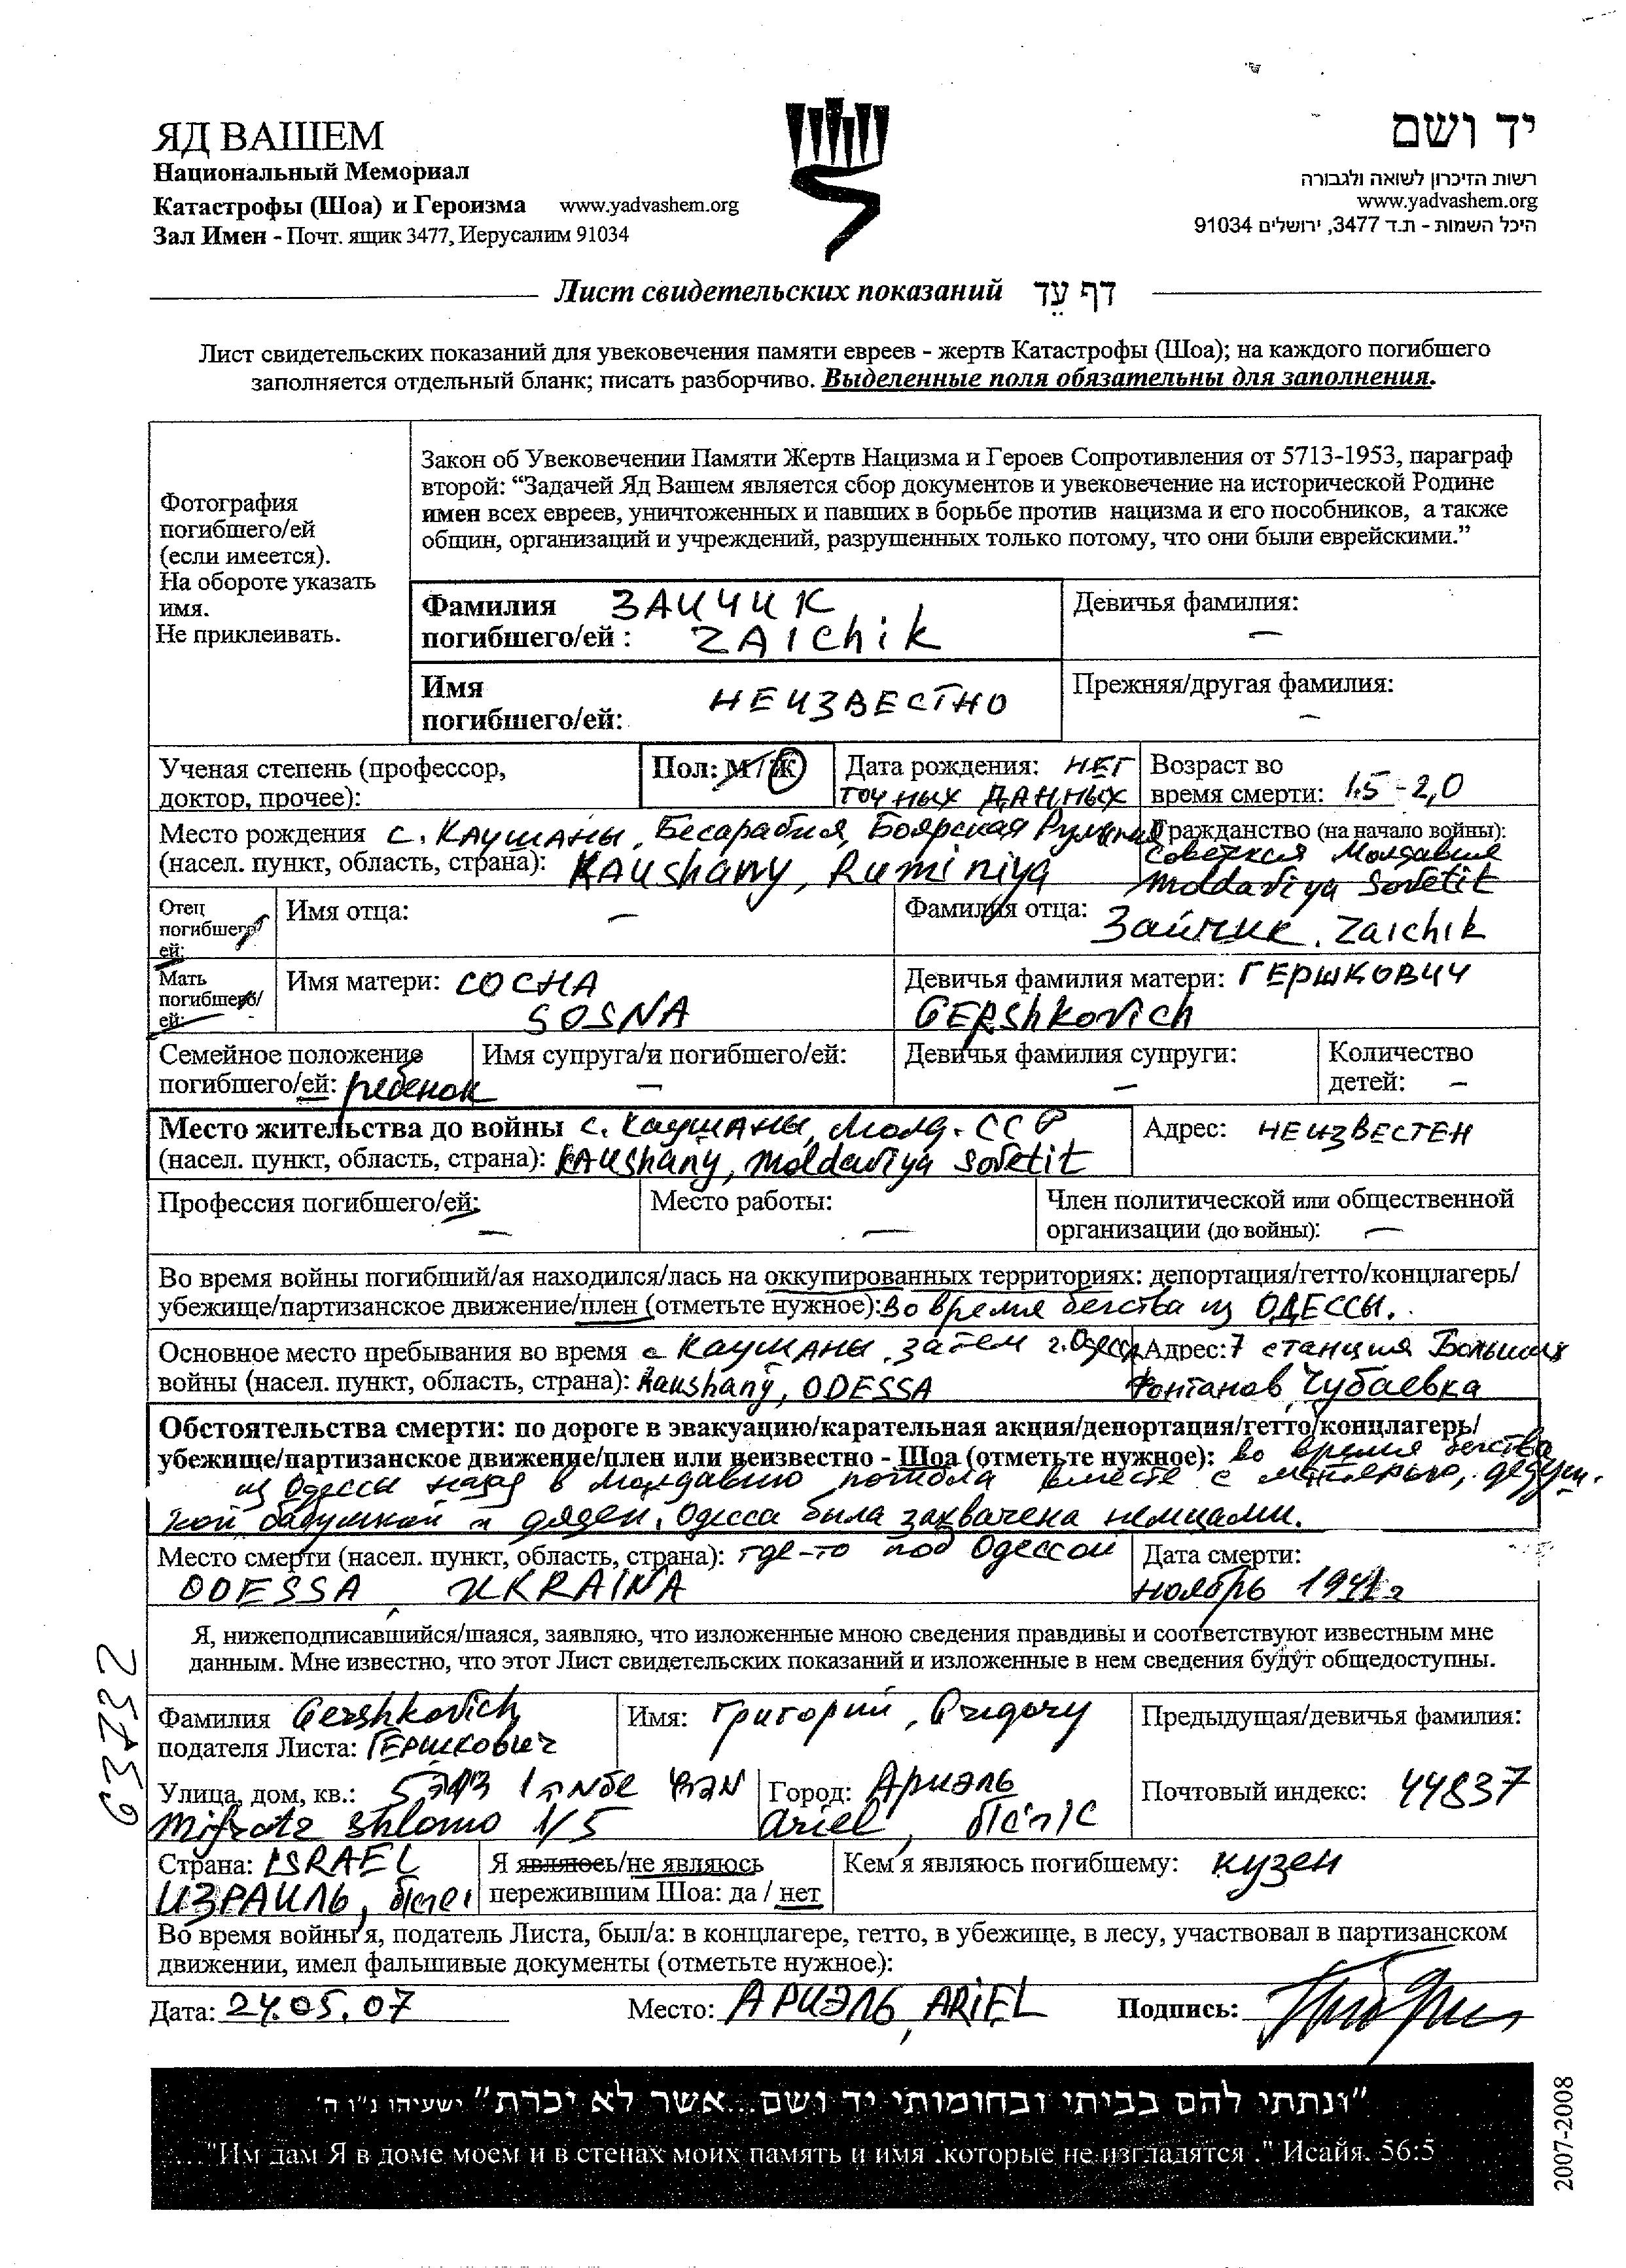 ЯД ВАШЕМ
Национальный Мемориал
Катастрофы (Шоа) и Героизма www.yadvashem.org
Зал Имен - Почт. ящик 3477, Иерусалим 91034
יד ושם
רשות הזיכרון לשואה ולגבורה
www.yadvashem.org
היכל השמות - ת.ד 3477, ירושלים 91034
Лист свидетельских показаний דף עֵד
Лист свидетельских показаний для увековечения памяти евреев - жертв Катастрофы (Шоа); на каждого погибшего
заполняется отдельный бланк; писать разборчиво. Выделенные поля обязательны для заполнения.
Фотография
погибшего/ей
(если имеется).
На обороте указать
имя.
Не приклеивать.
Закон об Увековечении Памяти Жертв Нацизма и Героев Сопротивления от 5713-1953, параграф
второй: “Задачей Яд Вашем является сбор документов и увековечение на исторической Родине
имен всех евреев, уничтоженных и павших в борьбе против нацизма и его пособников, а также
общин, организаций и учреждений, разрушенных только потому, что они были еврейскими.”
Фамилия ЗАИЧИК
погибшего/ей : ZAIChik
Девичья фамилия:
—
Имя
погибшего/ей: НЕИЗВЕСТНО
Прежняя/другая фамилия:
—
Ученая степень (профессор,
доктор, прочее):
Пол: М/Ж
Дата рождения: НЕТ
ТОЧНЫХ ДАННЫХ
Возраст во
время смерти: 1.5 - 2,0
Место рождения с. КАУШАНЫ, Бесарабия, Боярская Румыния
(насел. пункт, область, страна): KAUShany, Ruminiya
Гражданство (на начало войны):
Советская Молдавия
Moldaviya Sovetit
Отец
погибшего/
ей:
Имя отца: —
Фамилия отца:
Зайчик, Zaichik
Мать
погибшего/
ей:
Имя матери: СОСНА
SOSNA
Девичья фамилия матери: ГЕРШКОВИЧ
GERShkovich
Семейное положение
погибшего/ей: ребенок
Имя супруга/и погибшего/ей:
—
Девичья фамилия супруги:
—
Количество
детей: —
Место жительства до войны с. Каушаны, Молд. ССР
(насел. пункт, область, страна): KAUShany, Moldaviya Sovetit
Адрес: НЕИЗВЕСТЕН
Профессия погибшего/ей:
—
Место работы:
—
Член политической или общественной
организации (до войны): —
Во время войны погибший/ая находился/лась на оккупированных территориях: депортация/гетто/концлагерь/
убежище/партизанское движение/плен (отметьте нужное): Во время бегства из ОДЕССЫ.
Основное место пребывания во время с КАУШАНЫ, затем г. Одесса
войны (насел. пункт, область, страна): Kaushany, ODESSA
Адрес: 7 станция Больших
Фонтанов, Чубаевка
Обстоятельства смерти: по дороге в эвакуацию/карательная акция/депортация/гетто/концлагерь/
убежище/партизанское движение/плен или неизвестно - Шоа (отметьте нужное): Во время бегства
из Одессы назад в Молдавию погибла вместе с матерью, дедуш-
кой, бабушкой и дядей. Одесса была захвачена немцами.
Место смерти (насел. пункт, область, страна): где-то под Одессой
ODESSA, UKRAINA
Дата смерти:
ноябрь 1941 г
Я, нижеподписавшийся/шаяся, заявляю, что изложенные мною сведения правдивы и соответствуют известным мне
данным. Мне известно, что этот Лист свидетельских показаний и изложенные в нем сведения будут общедоступны.
63732
Фамилия Gershkovich
подателя Листа: ГЕРШКОВИЧ
Имя: Григорий, Grigory
Предыдущая/девичья фамилия:
Улица, дом, кв.: 5/1 שלמה מפרץ
Mifratz Shlomo 1/5
Город: Ариэль
Ariel, אריאל
Почтовый индекс: 44837
Страна: ISRAEL
ИЗРАИЛЬ, ישראל
Я являюсь/не являюсь
пережившим Шоа: да / нет
Кем я являюсь погибшему: кузен
Во время войны я, податель Листа, был/а: в концлагере, гетто, в убежище, в лесу, участвовал в партизанском
движении, имел фальшивые документы (отметьте нужное):
Дата: 24.05.07 Место: АРИЭЛЬ, ARIEL Подпись:
"ונתתי להם בביתי ובחומותי יד ושם...אשר לא יכרת" ישעיהו נ"ו ה'
..."Им дам Я в доме моем и в стенах моих память и имя .которые не изгладятся ." Исайя. 56:5
2007-2008